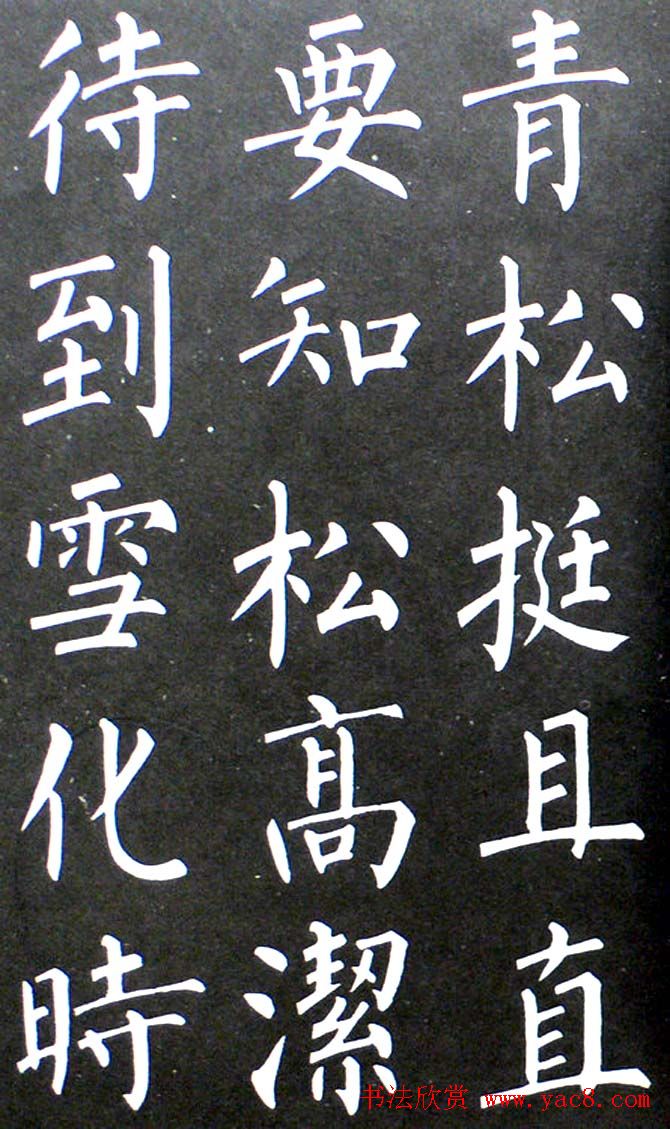 青松挺且直
要知松高潔
待到雪化時
书法欣赏 www.yac8.com